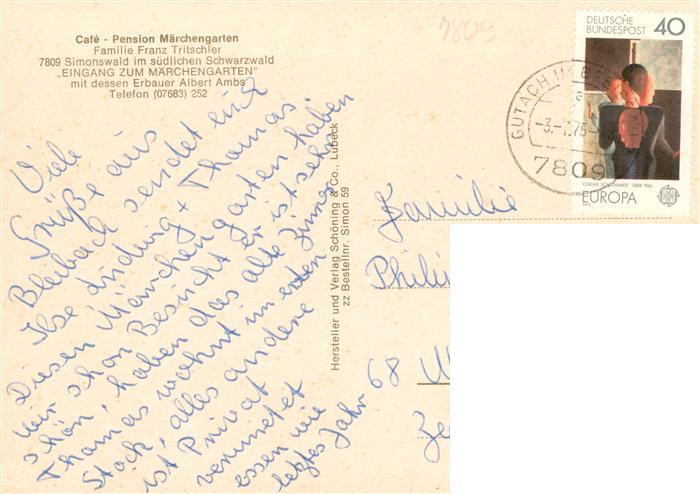 Café - Pension Märchengarten
Familie Franz Tritschler
7809 Simonswald im südlichen Schwarzwald
„EINGANG ZUM MÄRCHENGARTEN"
mit dessen Erbauer Albert Ambs
Telefon (07683) 252
7809
DEUTSCHE
BUNDESPOST 40
GUTACH IM
-3.-7.75-
7809
OSKAR SCHLEMMER 1888-1943
EUROPA
Viele
Grüße aus
Bleibach sendet euch
Ilse Ludwig + Thomas
Diesen Märchengarten haben
wir schon Besucht er ist sehr
schön, haben das alte Zimmer
Thomas wohnt im ersten
Stock, alles andere
ist Privat
vermietet
essen wie
letztes Jahr
Hersteller und Verlag Schöning & Co., Lübeck
zz Bestellnr. Simon 59
Familie
Phili
68